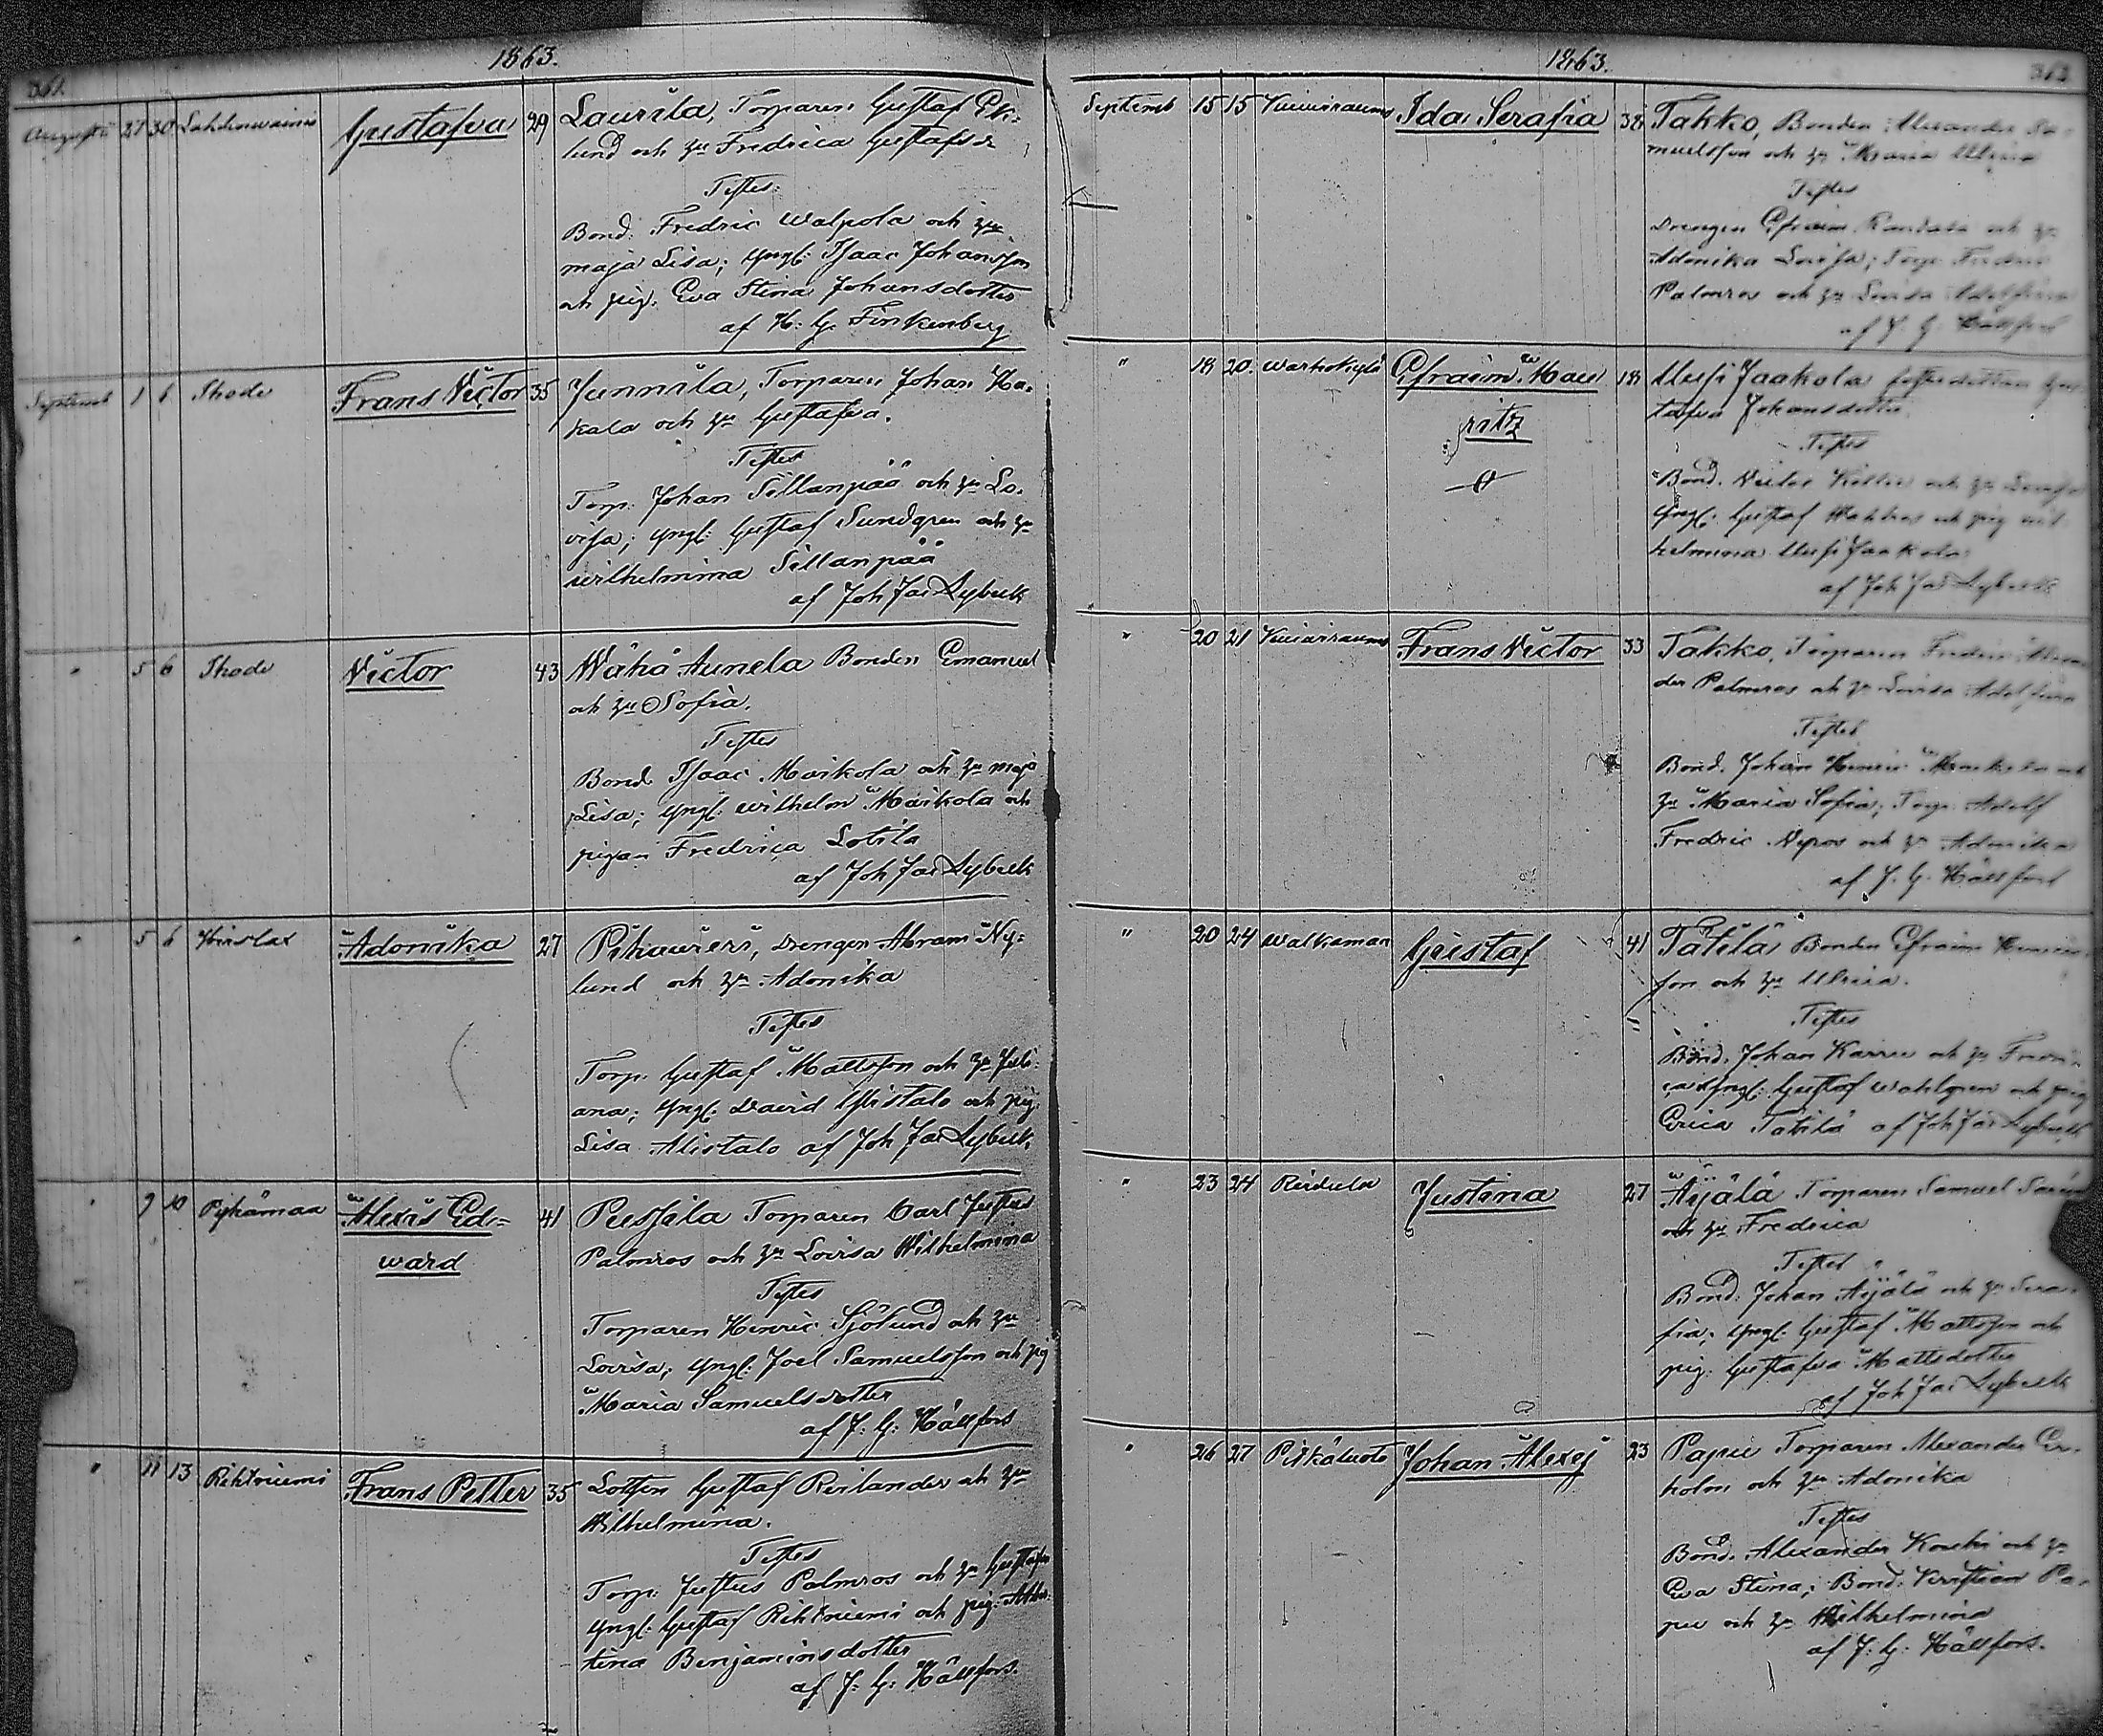 1863.
361.
Augusti 27 30 Lahdenvainio Gustafva 29 Laurila, Torparen Gustaf Ek-
lund och hu Fredrica Gustafsdr
Testes:
Bond. Fredric Walpola och hu
Maja Lisa; yngl: Isaac Johansson
och pig. Eva Stina Johansdotter
af K: G: Finkenberg
Septemb 1 6 Thode Frans Victor 35 Junnila, Torparen Johan Ha-
kala och hu Gustafva.
Testes
Torp. Johan Sillanpää och hu Lo-
visa; yngl: Gustaf Sundgren och hu
Wilhelmina Sillanpää
af Joh Jac Lybeck
" 5 6 Thode Victor 43 Wähä Aunela Bonden Emanuel
och hu Sofia.
Testes
Bond. Isaac Maikola och hu Maja
Lisa; yngl: Wilhelm Maikola och
pigan Fredrica Lotila
af Joh Jac Lybeck
" 5 6 Hirslax Adonika 27 Pihauieri, Drengen Abram Ny-
lund och hu Adonika
Testes
Torp. Gustaf Mattsson och hu Juli-
ana; yngl: David Alistalo och pig.
Lisa Alistalo af Joh Jac Lybeck
" 9 10 Pyhämaa Alexis Ed-
ward 41 Pessila Torparen Carl Justus
Palmros och hu Lovisa Wilhelmina
Testes
Torparen Henric Sjölund och hu
Lovisa; yngl: Joel Samuelsson och pig
Maria Samuelsdotter
af J: G: Hällfors
" 11 13 Rihtniemi Frans Petter 35 Lotsen Gustaf Reilander och hu
Wilhelmina.
Testes
Torp. Justus Palmros och hu Gustafva
yngl: Gustaf Rihtniemi och pig.
tina Benjaminsdotter
af J: G: Hällfors.
1863.
Septemb 15 15 Kuivirauma Ida Serafia 38 Takko, Bonden Alexander Sa-
muelsson och hu Maria Ulrica
Testes
Drengen Efraim Randala och hu
Adonika Lovisa; Torp. Fredric
Palmros och hu Lovisa Adolfina
af J. G. Hällfors
" 18 20. Warhokylä Efraim Mau-
ritz 18 Uusi Jaakola dottren Gus-
tafva Johansdotter.
Testes
Bond. Victor och hu Lovisa
yngl. Gustaf Wahlros och pig Wil-
helmina Uusi Jaakola
af Joh Jac Lybeck
" 20 21 Kuivirauma Frans Victor 33 Takko, Torparen Fredric Alexan-
der Palmros och hu Lovisa Adolfina
Testes
Bond. Johan Henric och
hu Maria Sofia; Torp. Adolf
Fredric Nyros och hu Adonika
af J. G. Hällfors
" 20 24 Walkamaa Gustaf 41 Tätilä Bonden Efraim Henrics-
son och hu Ulrica.
Testes
Bond. Johan Karru och hu Fredri-
ca; yngl: Gustaf Wahlgren och pig
Erica Tätilä af Joh Jac Lybeck
" 23 24 Reidula Justina 27 Äijälä Torparen Samuel
och hu Fredrica
Testes
Bond. Johan Äijälä och hu Sera-
fia; yngl: Gustaf Mattsson och
pig. Gustafva Mattsdotter
af Joh Jac Lybeck
" 26 27 Pitkäluoto Johan Alexej 23 Papu Torparen Alexander Er-
holm och hu Adonika
Testes
Bond. Alexander Kouhi och hu
Eva Stina; Bond. Kristian Pa-
pu och hu Wilhelmina
af J: G: Hällfors.